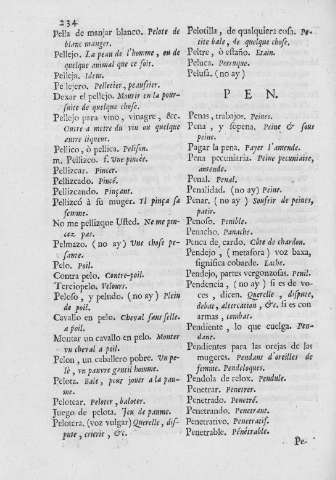 234
Pella de manjar blanco. Pelote de
blanc manger.
Pellejo. La peau de l'homme, ou de
quelque animal que ce soit.
Pelleja. Idem.
Pellejero. Pelletier, peaussier.
Dexar el pellejo. Mourir en la pour-
suite de quelque chose.
Pellejo para vino, vinagre, &c.
Outre a metre du vin ou quelque
autre liqueur.
Pellico, ò pellica. Pelisse.
m. Pellizco. f. Une pincée.
Pellizcar. Pincer.
Pellizcado. Pincé.
Pellizcando. Pinçant.
Pellizcó à su muger. Il pinça sa
femme.
No me pellizque Usted. Ne me pin-
cez pas.
Pelmazo. (no ay) Une chose pe-
sante.
Pelo. Poil.
Contra pelo. Contre-poil.
Terciopelo. Velours.
Peloso, y peludo. (no ay) Plein
de poil.
Cavallo en pelo. Cheval sans selle.
a poil.
Montar un cavallo en pelo. Monter
un cheval a poil.
Pelon, un caballero pobre. Un pe-
lé, un pauvre gentil homme.
Pelota. Bale, pour jouer a la pau-
me.
Pelotear. Peloter, baloter.
Juego de pelota. Jeu de paume.
Pelotera. (voz vulgar) Querelle, dis-
pute, crierie, &c.
Pelotilla, de qualquiera cosa. Pe-
tite bale, de quelque chose.
Peltre, ò estaño. Etain.
Peluca. Perruque.
Pelusa. (no ay)
PEN.
Penas, trabajos. Peines.
Pena, y sopena. Peine & sous
peine.
Pagar la pena. Payer l'amende.
Pena pecuniaria. Peine pecuniaire,
amende.
Penal. Penal.
Penalidad. (no ay) Peine.
Penar. (no ay) Soufrir de peines,
patir.
Penoso. Penible.
Penacho. Panache.
Penca de cardo. Côte de chardon.
Pendejo, (metafora) voz baxa,
significa cobarde. Lache.
Pendejo, partes vergonzosas. Penil.
Pendencia, (no ay) si es de vo-
ces, dicen. Querelle, dispute,
debat, altercation, &c. si es con
armas, combat.
Pendiente, lo que cuelga. Pen-
dant.
Pendientes para las orejas de las
mugeres. Pendans d'oreilles de
femme. Pendeloques.
Pendola de relox. Pendule.
Penetrar. Penetrer.
Penetrado. Penetré.
Penetrando. Penetrant.
Penetrativo. Penetratif.
Penetrable. Pénétrable.
Pe-